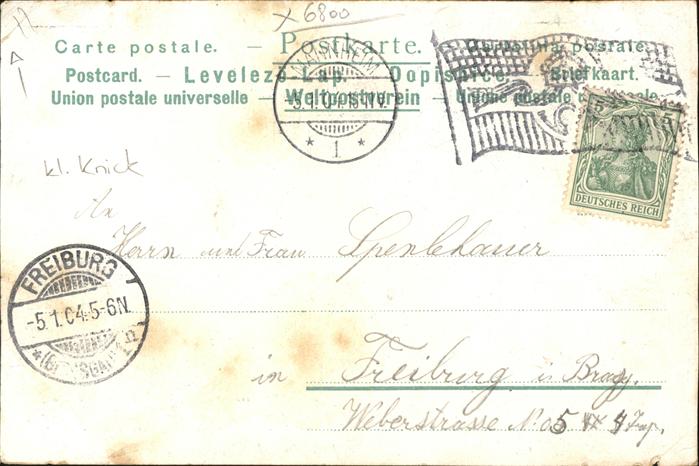 x 6800
Carte postale. — Postkarte. — Cartolina postale.
Postcard. — Levelező-Lap. — Dopisnice. — Briefkaart.
Union postale universelle — Weltpostverein — Unione postale
MANNHEIM
5.1.04
* 1 *
DEUTSCHES REICH
kl. Knick
An
Herrn und Frau
FREIBURG
-5.1.04.5-6N.
in Freiburg i. Brsg.
Weberstrasse No 5